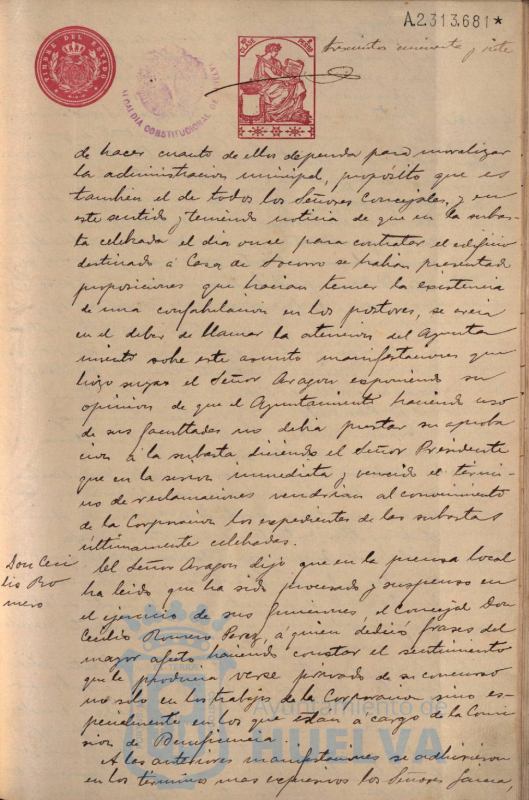 A.2.313.681*
trescientos cincuenta y siete
TIMBRE DEL ESTADO
ALCALDIA CONSTITUCIONAL DE
CLASE
PESO
de hacer cuanto de ellos dependa para moralizar
la administracion municipal, proposito que es
tambien el de todos los Señores Concejales, y en
este sentido y teniendo noticia de que en la subas-
ta celebrada el dia once para contratar el edificio
destinado á Casa de Socorro se habian presentado
proposiciones que hacian temer la existencia
de una confabulacion en los postores, se creia
en el deber de llamar la atencion del Ayunta
miento sobre este asunto manifestaciones que
hizo suyas el Señor Aragon exponiendo su
opinion de que el Ayuntamiento haciendo uso
de sus facultades no debia prestar su aproba
cion á la subasta diciendo el Señor Presidente
que en la sesion inmediata y vencido el térmi-
no de reclamaciones vendrian al conocimiento
de la Corporacion los expedientes de las subastas
últimamente celebradas.
Don Ceci
lio Ro
mero
El Señor Aragon dijo que en la prensa local
ha leido que ha sido procesado y suspenso en
el ejercicio de sus funciones el concejal Don
Cecilio Romero Perez, á quien dedicó frases del
mayor afecto haciendo constar el sentimiento
que le producia verse privado de su concurso
no solo en los trabajos de la Corporacion sino es-
pecialmente en los que estan a cargo de la Comi
sion de Beneficencia.
A las anteriores manifestaciones se adhirieron
en los términos mas expresivos los Señores Garcia,
Ayuntamiento de
HUELVA